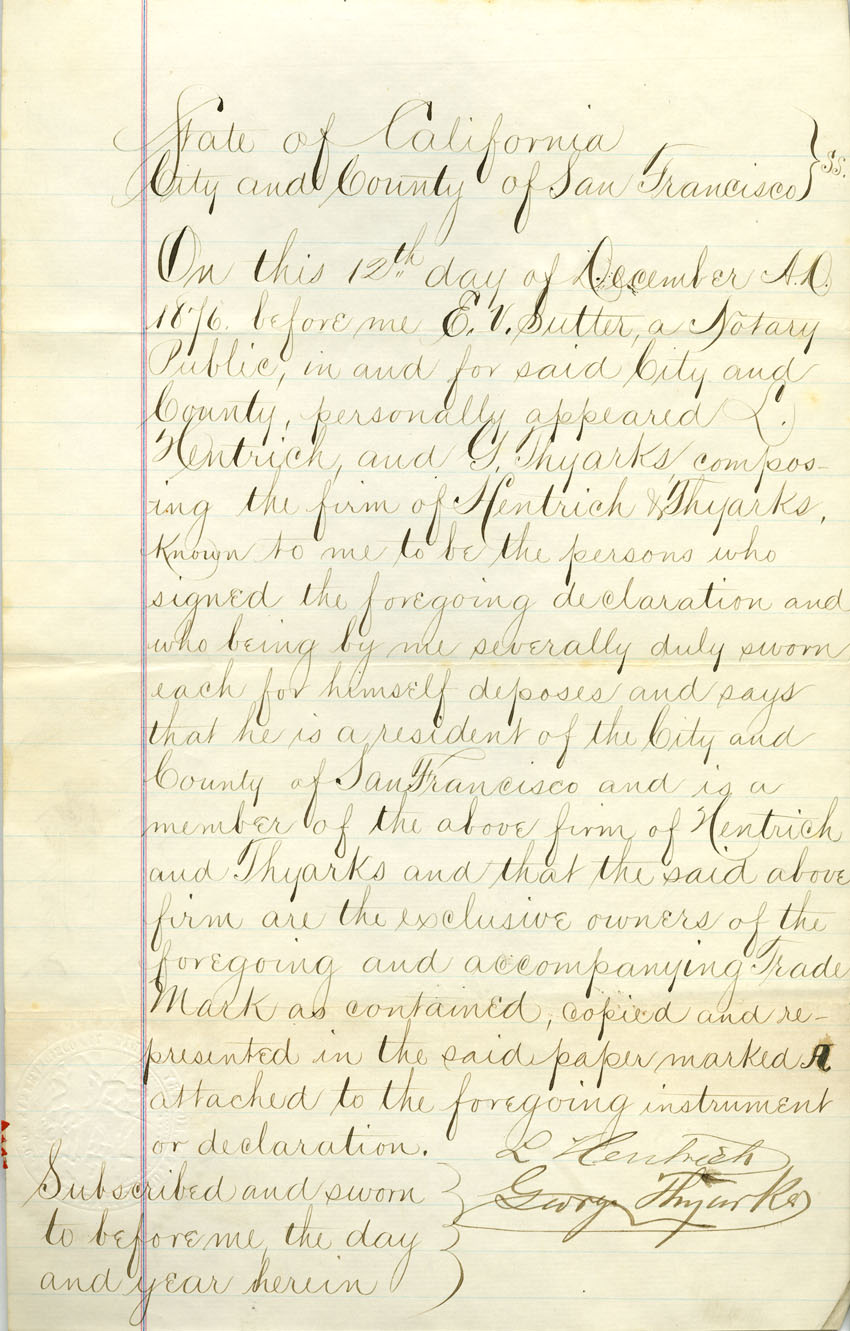 State of California
City and County of San Francisco } SS.
On this 12th day of December A.D.
1876. before me E. V. Sutter, a Notary
Public, in and for said City and
County, personally appeared L.
Hentrich, and G. Thyarks, compos-
ing the firm of Hentrich & Thyarks,
known to me to be the persons who
signed the foregoing declaration and
who being by me severally duly sworn
each for himself deposes and says
that he is a resident of the City and
County of San Francisco and is a
member of the above firm of Hentrich
and Thyarks and that the said above
firm are the exclusive owners of the
foregoing and accompanying Trade
Mark as contained, copied and re-
presented in the said paper marked A
attached to the foregoing instrument
or declaration.
L Hentrich
George Thyarks
Subscribed and sworn
to before me, the day
and year herein